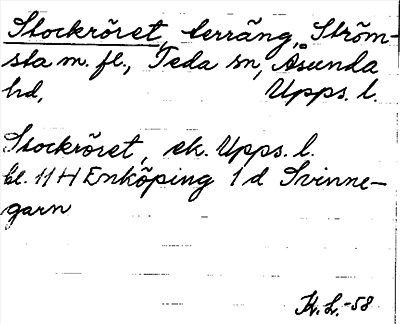 Stockröret, terräng, Ström-
sta m. fl., Teda sn, Åsunda
hd, Upps. l.
Stockröret, ek. Upps. l.
bl. 11 H Enköping 1 d Svinne-
garn
K. L. -58